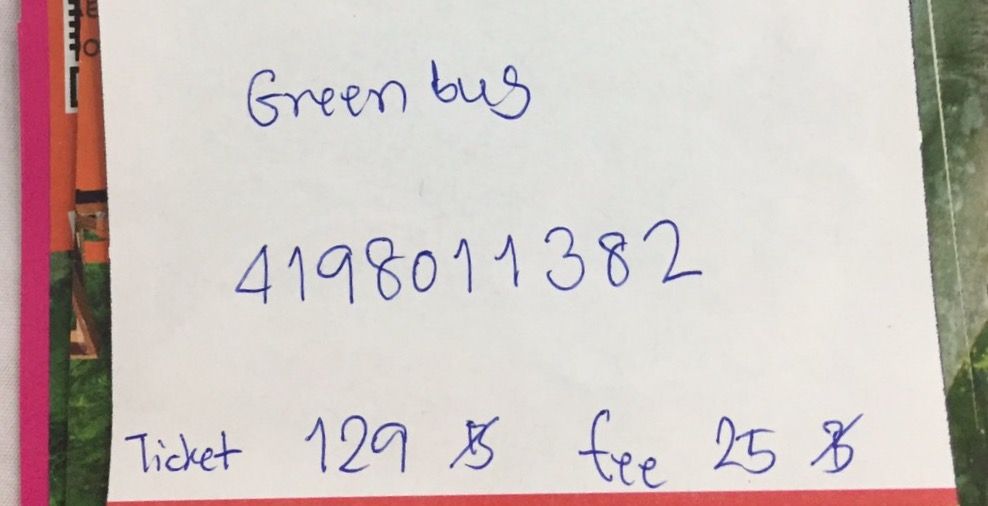 Green bus
4198011382
Ticket 129 ฿ fee 25 ฿